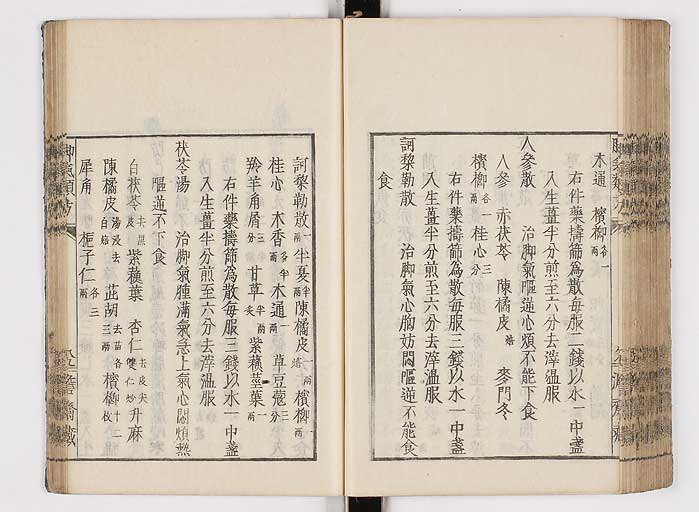 木通 檳榔各一兩
右件藥擣篩為散每服三錢以水一中盞
入生薑半分煎至六分去滓溫服
人參散 治脚氣嘔逆心煩不能下食
人參 赤茯苓 陳橘皮焙 麥門冬
檳榔各一兩 桂心三分
右件藥擣篩為散每服三錢以水一中盞
入生薑半分煎至六分去滓溫服
訶黎勒散 治脚氣心胸妨悶嘔逆不能食
食
訶黎勒散一兩 半夏半兩 陳橘皮一兩焙 檳榔一兩
桂心 木香各半兩 木通一兩 草豆蔻三分
羚羊角屑三分 甘草半兩 紫蘇莖葉一兩
右件藥擣篩為散每服三錢以水一中盞
入生薑半分煎至六分去滓溫服
茯苓湯 治脚氣腫滿氣急上氣心悶煩熱
嘔逆不下食
白茯苓去黑皮 紫蘇葉 杏仁去皮尖雙仁炒 升麻
陳橘皮湯浸去白焙 茈胡去苗各三兩 檳榔十二枚
犀角 梔子仁各三兩
脚氣類方